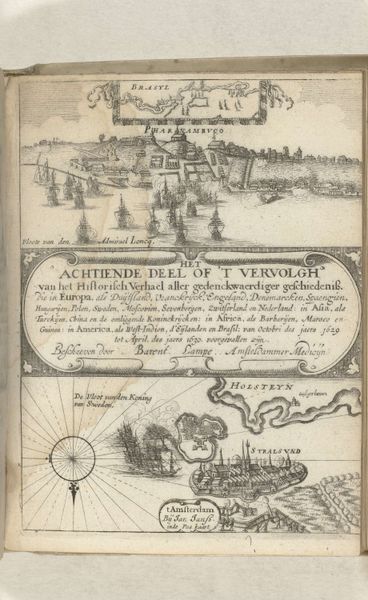 BRASYL
PHARNAMBUCO
Vloote van den Admirael Loncq.
HET
ACHTIENDE DEEL OF 'T VERVOLGH
van het Historisch Verhael aller gedenckwaerdiger geschiedeniß.
die in Europa, als Duijtsland, Vranckrijck, Engeland, Denemarcken, Spaengien,
Hungarijen, Polen, Sweden, Moscovien, Sevenbergen, Zwitserland en Nederland: in Asia, als
Turckijen, China en de omliggende Koninckrijcken: in Africa, als Barbarijen, Maroco en
Guinea: in America, als West-Indien, d'Eylanden en Brasil: van Octobri des jaers 1629
tot April, des jaers 1630. voorgevallen zijn.
Beschreeven door Barent Lampe Amsteldammer Medicijn
HOLSTEYN
De Vloot van den Koning
van Sweden.
STRALSUND
t'Amsterdam
Bij Jan Janß
inde Pas-kaart.